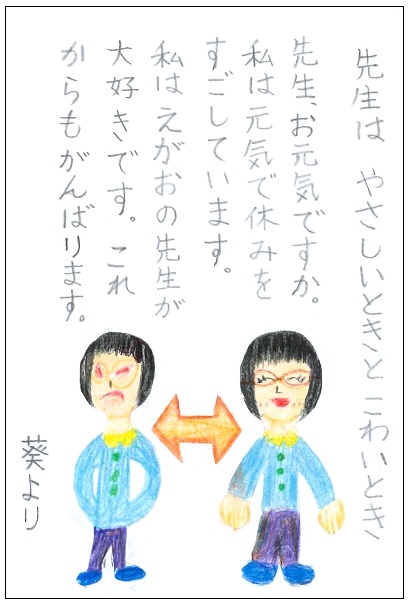 先生は　やさしいときと　こわいとき
先生、お元気ですか。
私は元気で休みを
すごしています。
私はえがおの先生が
大好きです。これ
からもがんばります。
葵より